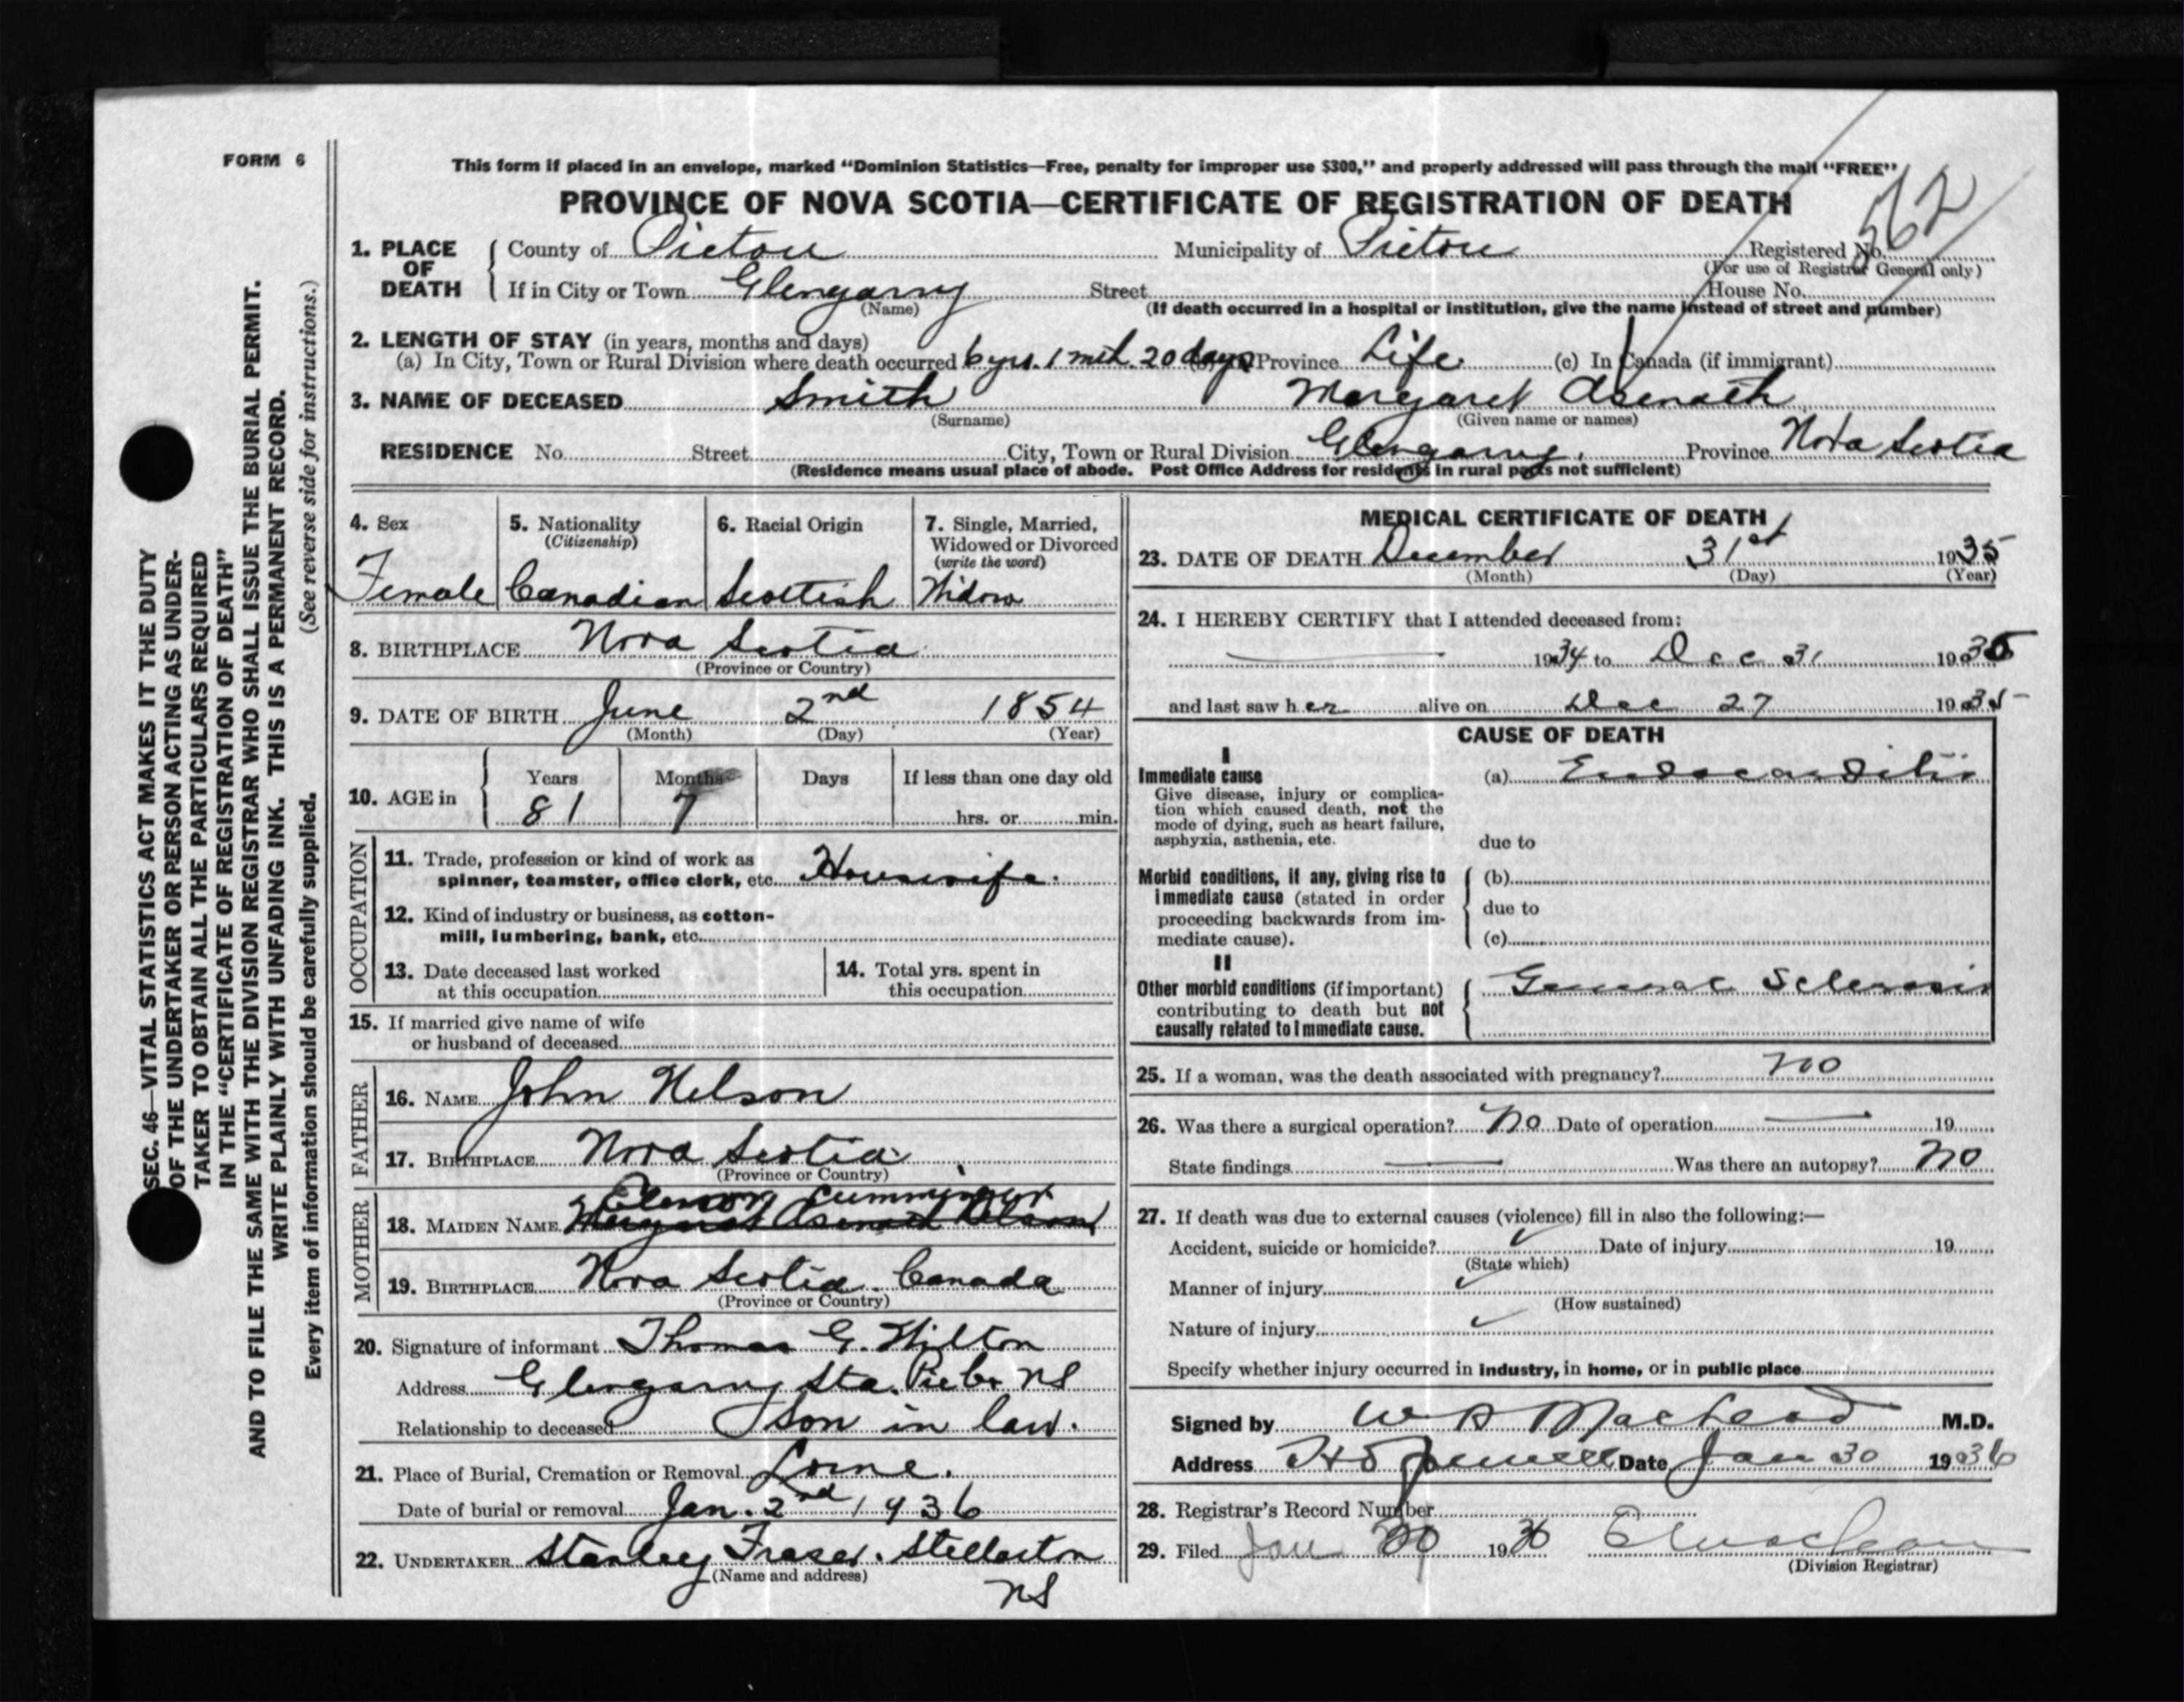 FORM 6
This form if placed in an envelope, marked “Dominion Statistics—Free, penalty for improper use $300,” and properly addressed will pass through the mail “FREE”
PROVINCE OF NOVA SCOTIA—CERTIFICATE OF REGISTRATION OF DEATH
562
1. PLACE OF DEATH County of Pictou Municipality of Pictou Registered No.
(For use of Registrar General only)
If in City or Town Glengarry Street House No.
(Name) (If death occurred in a hospital or institution, give the name instead of street and number)
2. LENGTH OF STAY (in years, months and days)
(a) In City, Town or Rural Division where death occurred 6 yrs. 1 mth. 20 days Province Life (c) In Canada (if immigrant)
3. NAME OF DECEASED Smith Margaret Asenath
(Surname) (Given name or names)
RESIDENCE No. Street City, Town or Rural Division Glengarry. Province Nova Scotia
(Residence means usual place of abode. Post Office Address for residents in rural parts not sufficient)
4. Sex
Female
5. Nationality
(Citizenship)
Canadian
6. Racial Origin
Scottish
7. Single, Married,
Widowed or Divorced
(write the word)
Widow
8. BIRTHPLACE Nova Scotia
(Province or Country)
9. DATE OF BIRTH June 2nd 1854
(Month) (Day) (Year)
10. AGE in Years Months Days If less than one day old
81 7 hrs. or min.
OCCUPATION
11. Trade, profession or kind of work as
spinner, teamster, office clerk, etc. Housewife.
12. Kind of industry or business, as cotton-
mill, lumbering, bank, etc.
13. Date deceased last worked
at this occupation
14. Total yrs. spent in
this occupation
15. If married give name of wife
or husband of deceased
FATHER
16. NAME John Nelson
17. BIRTHPLACE Nova Scotia
(Province or Country)
MOTHER
Cumminger
18. MAIDEN NAME Margaret Asenath Nelson
19. BIRTHPLACE Nova Scotia. Canada
(Province or Country)
20. Signature of informant Thomas G. Hilton
Address Glengarry Sta. Pictou NS
Relationship to deceased Son in law.
21. Place of Burial, Cremation or Removal Lorne.
Date of burial or removal Jan. 2nd 1936
22. UNDERTAKER Stanley Fraser. Stellarton
(Name and address)
NS
MEDICAL CERTIFICATE OF DEATH
23. DATE OF DEATH December 31st 1935
(Month) (Day) (Year)
24. I HEREBY CERTIFY that I attended deceased from:
1934 to Dec 31 1935
and last saw her alive on Dec 27 1935
CAUSE OF DEATH
I
Immediate cause (a) Endocarditis
Give disease, injury or complica-
tion which caused death, not the
mode of dying, such as heart failure,
asphyxia, asthenia, etc.
due to
Morbid conditions, if any, giving rise to (b)
immediate cause (stated in order due to
proceeding backwards from im-
mediate cause). (c)
II
Other morbid conditions (if important) General Sclerosis
contributing to death but not
causally related to immediate cause.
25. If a woman, was the death associated with pregnancy? no
26. Was there a surgical operation? No Date of operation — 19
State findings — Was there an autopsy? No
27. If death was due to external causes (violence) fill in also the following:—
Accident, suicide or homicide? Date of injury 19
(State which)
Manner of injury
(How sustained)
Nature of injury
Specify whether injury occurred in industry, in home, or in public place
Signed by W A MacLeod M.D.
Address Hopewell Date Jan 30 1936
28. Registrar's Record Number
29. Filed Jan 30 1936
(Division Registrar)
SEC. 46—VITAL STATISTICS ACT MAKES IT THE DUTY
OF THE UNDERTAKER OR PERSON ACTING AS UNDER-
TAKER TO OBTAIN ALL THE PARTICULARS REQUIRED
IN THE “CERTIFICATE OF REGISTRATION OF DEATH”
AND TO FILE THE SAME WITH THE DIVISION REGISTRAR WHO SHALL ISSUE THE BURIAL PERMIT.
WRITE PLAINLY WITH UNFADING INK. THIS IS A PERMANENT RECORD.
Every item of information should be carefully supplied. (See reverse side for instructions.)